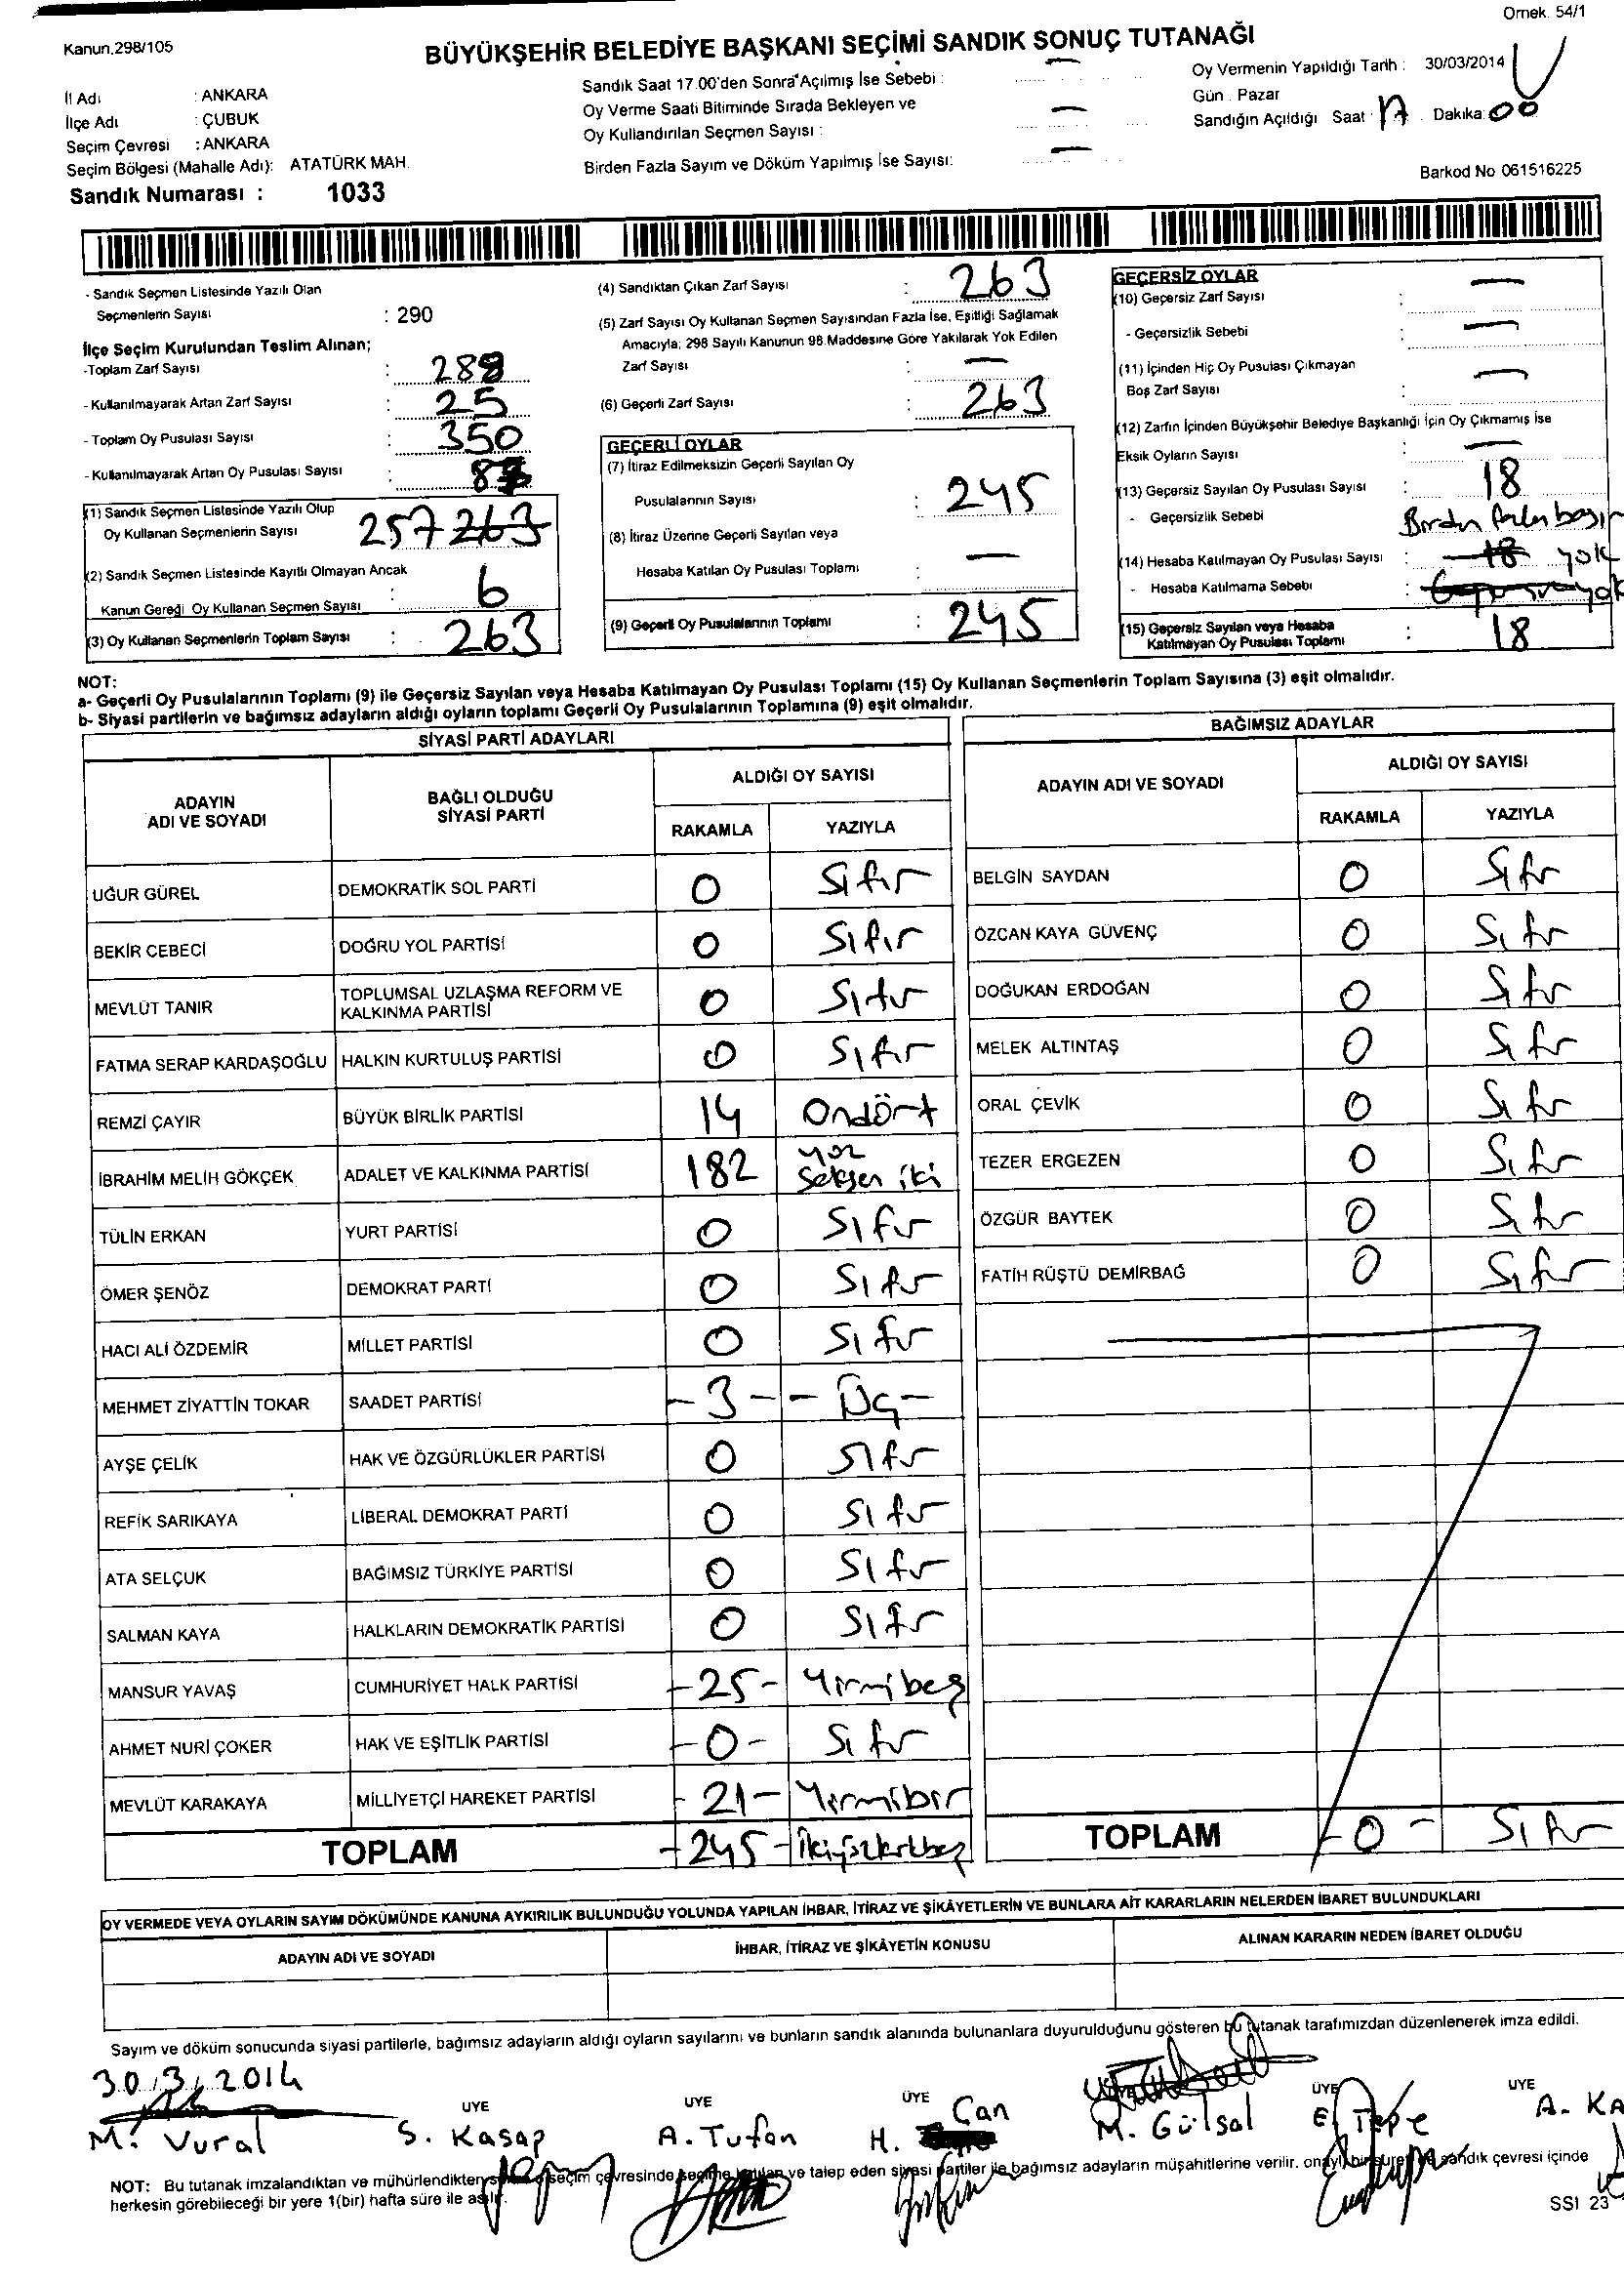 Örnek. 54/1
Kanun.298/105
BÜYÜKŞEHİR BELEDİYE BAŞKANI SEÇİMİ SANDIK SONUÇ TUTANAĞI
İl Adı : ANKARA
İlçe Adı : ÇUBUK
Seçim Çevresi : ANKARA
Seçim Bölgesi (Mahalle Adı): ATATÜRK MAH.
Sandık Numarası : 1033
Sandık Saat 17.00'den Sonra Açılmış İse Sebebi : —
Oy Verme Saati Bitiminde Sırada Bekleyen ve
Oy Kullandırılan Seçmen Sayısı : —
Birden Fazla Sayım ve Döküm Yapılmış İse Sayısı: —
Oy Vermenin Yapıldığı Tarih : 30/03/2014
Gün . Pazar
Sandığın Açıldığı Saat : 17 Dakika: 00
Barkod No 061516225
- Sandık Seçmen Listesinde Yazılı Olan
Seçmenlerin Sayısı : 290
İlçe Seçim Kurulundan Teslim Alınan;
-Toplam Zarf Sayısı : 288
- Kullanılmayarak Artan Zarf Sayısı : 25
- Toplam Oy Pusulası Sayısı : 350
- Kullanılmayarak Artan Oy Pusulası Sayısı :
(1) Sandık Seçmen Listesinde Yazılı Olup
Oy Kullanan Seçmenlerin Sayısı 257 263
(2) Sandık Seçmen Listesinde Kayıtlı Olmayan Ancak
Kanun Gereği Oy Kullanan Seçmen Sayısı : 6
(3) Oy Kullanan Seçmenlerin Toplam Sayısı : 263
(4) Sandıktan Çıkan Zarf Sayısı : 263
(5) Zarf Sayısı Oy Kullanan Seçmen Sayısından Fazla İse, Eşitliği Sağlamak
Amacıyla; 298 Sayılı Kanunun 98.Maddesine Göre Yakılarak Yok Edilen
Zarf Sayısı : —
(6) Geçerli Zarf Sayısı : 263
GEÇERLİ OYLAR
(7) İtiraz Edilmeksizin Geçerli Sayılan Oy
Pusulalarının Sayısı : 245
(8) İtiraz Üzerine Geçerli Sayılan veya
Hesaba Katılan Oy Pusulası Toplamı : —
(9) Geçerli Oy Pusulalarının Toplamı : 245
GEÇERSİZ OYLAR
(10) Geçersiz Zarf Sayısı : —
- Geçersizlik Sebebi : —
(11) İçinden Hiç Oy Pusulası Çıkmayan
Boş Zarf Sayısı : —
(12) Zarfın İçinden Büyükşehir Belediye Başkanlığı İçin Oy Çıkmamış İse
Eksik Oyların Sayısı : —
(13) Geçersiz Sayılan Oy Pusulası Sayısı : 18
- Geçersizlik Sebebi Birden fazla
(14) Hesaba Katılmayan Oy Pusulası Sayısı : 18 yok
- Hesaba Katılmama Sebebi : yok
(15) Geçersiz Sayılan veya Hesaba
Katılmayan Oy Pusulası Toplamı : 18
NOT:
a- Geçerli Oy Pusulalarının Toplamı (9) ile Geçersiz Sayılan veya Hesaba Katılmayan Oy Pusulası Toplamı (15) Oy Kullanan Seçmenlerin Toplam Sayısına (3) eşit olmalıdır.
b- Siyasi partilerin ve bağımsız adayların aldığı oyların toplamı Geçerli Oy Pusulalarının Toplamına (9) eşit olmalıdır.
SİYASİ PARTİ ADAYLARI
ADAYIN ADI VE SOYADI BAĞLI OLDUĞU SİYASİ PARTİ ALDIĞI OY SAYISI
RAKAMLA YAZIYLA
UĞUR GÜREL DEMOKRATİK SOL PARTİ 0 Sıfır
BEKİR CEBECİ DOĞRU YOL PARTİSİ 0 Sıfır
MEVLÜT TANIR TOPLUMSAL UZLAŞMA REFORM VE KALKINMA PARTİSİ 0 Sıfır
FATMA SERAP KARDAŞOĞLU HALKIN KURTULUŞ PARTİSİ 0 Sıfır
REMZİ ÇAYIR BÜYÜK BİRLİK PARTİSİ 14 Ondört
İBRAHİM MELİH GÖKÇEK ADALET VE KALKINMA PARTİSİ 182 yüz Seksen iki
TÜLİN ERKAN YURT PARTİSİ 0 Sıfır
ÖMER ŞENÖZ DEMOKRAT PARTİ 0 Sıfır
HACI ALİ ÖZDEMİR MİLLET PARTİSİ 0 Sıfır
MEHMET ZİYATTİN TOKAR SAADET PARTİSİ -3- - Üç -
AYŞE ÇELİK HAK VE ÖZGÜRLÜKLER PARTİSİ 0 Sıfır
REFİK SARIKAYA LİBERAL DEMOKRAT PARTİ 0 Sıfır
ATA SELÇUK BAĞIMSIZ TÜRKİYE PARTİSİ 0 Sıfır
SALMAN KAYA HALKLARIN DEMOKRATİK PARTİSİ 0 Sıfır
MANSUR YAVAŞ CUMHURİYET HALK PARTİSİ -25- Yirmibeş
AHMET NURİ ÇOKER HAK VE EŞİTLİK PARTİSİ -0- Sıfır
MEVLÜT KARAKAYA MİLLİYETÇİ HAREKET PARTİSİ -21- Yirmibir
TOPLAM -245- İkiyüzkırkbeş
BAĞIMSIZ ADAYLAR
ADAYIN ADI VE SOYADI ALDIĞI OY SAYISI
RAKAMLA YAZIYLA
BELGİN SAYDAN 0 Sıfır
ÖZCAN KAYA GÜVENÇ 0 Sıfır
DOĞUKAN ERDOĞAN 0 Sıfır
MELEK ALTINTAŞ 0 Sıfır
ORAL ÇEVİK 0 Sıfır
TEZER ERGEZEN 0 Sıfır
ÖZGÜR BAYTEK 0 Sıfır
FATİH RÜŞTÜ DEMİRBAĞ 0 Sıfır
TOPLAM -0- Sıfır
OY VERMEDE VEYA OYLARIN SAYIM DÖKÜMÜNDE KANUNA AYKIRILIK BULUNDUĞU YOLUNDA YAPILAN İHBAR, İTİRAZ VE ŞİKÂYETLERİN VE BUNLARA AİT KARARLARIN NELERDEN İBARET BULUNDUKLARI
ADAYIN ADI VE SOYADI İHBAR, İTİRAZ VE ŞİKÂYETİN KONUSU ALINAN KARARIN NEDEN İBARET OLDUĞU
Sayım ve döküm sonucunda siyasi partilerle, bağımsız adayların aldığı oyların sayılarını ve bunların sandık alanında bulunanlara duyurulduğunu gösteren bu tutanak tarafımızdan düzenlenerek imza edildi.
30/3/2014
ÜYE ÜYE ÜYE ÜYE ÜYE
M. Vural S. Kasap A. Tufan H. Can M. Gülsal E. Tepe A. KA
NOT: Bu tutanak imzalandıktan ve mühürlendikten seçim çevresinde seçime katılan ve talep eden siyasi partiler ile bağımsız adayların müşahitlerine verilir, onaylı bir sureti de sandık çevresi içinde
herkesin görebileceği bir yere 1(bir) hafta süre ile asılır.
SSI 23